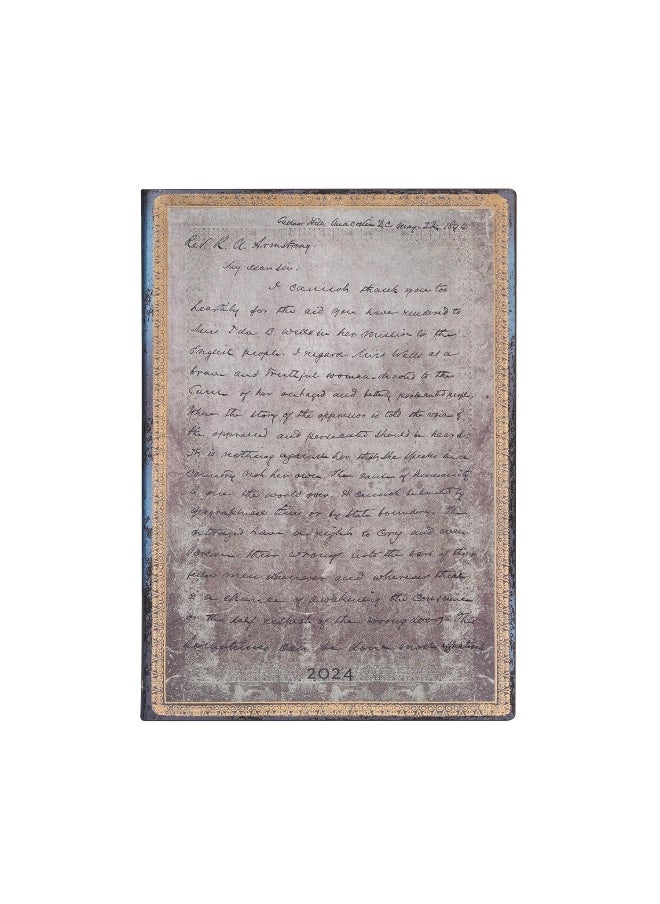 Cedar Hill Anacostia D.C. May. 22, 1894
Rev. R. A. Armstrong.
My dear Sir:
I cannot thank you too
heartily for the aid you have rendered to
Miss Ida B. Wells in her mission to the
English people. I regard Miss Wells as a
brave and truthful woman. devoted to the
Cause of her outraged and bitterly persecuted people.
Where the story of the oppressor is told the voice of
the oppressed and persecuted should be heard.
It is nothing against her that she speaks in a
Country not her own. The cause of humanity
is one the world over. It cannot be limited by
geographical lines or by State boundaries. The
outraged have a right to Cry and even
scream their wrongs into the ears of their
fellow men whenever and wherever there
is a chance of awakening the Conscience
or the self respect of the wrong doers. This
can be done more
2024